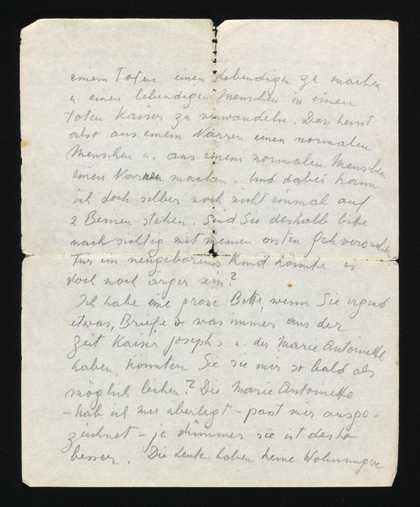 einem Toten einen Lebendigen zu machen
u. einen lebendigen Menschen in einen
toten Kaiser zu verwandeln. Das heisst
also aus einem Narren einen normalen
Menschen u. aus einem normalen Menschen
einen Narren machen. Und dabei kann
ich doch selber noch nicht einmal auf
2 Beinen stehen. Sind Sie deshalb bitte
nachsichtig mit meinen ersten Gehversuchen
Für ein neugeborenes Kind könnte es
doch noch ärger sein?
Ich habe eine grosse Bitte, wenn Sie irgend
etwas, Briefe o was immer aus der
Zeit Kaiser Josephs u. der Marie Antoinette
haben, könnten Sie sie mir so bald als
möglich leihen? Die Marie Antoinette
- hab ich mir überlegt - passt mir ausge-
zeichnet - je dümmer sie ist desto
besser. Die Leute haben keine Wohnungen